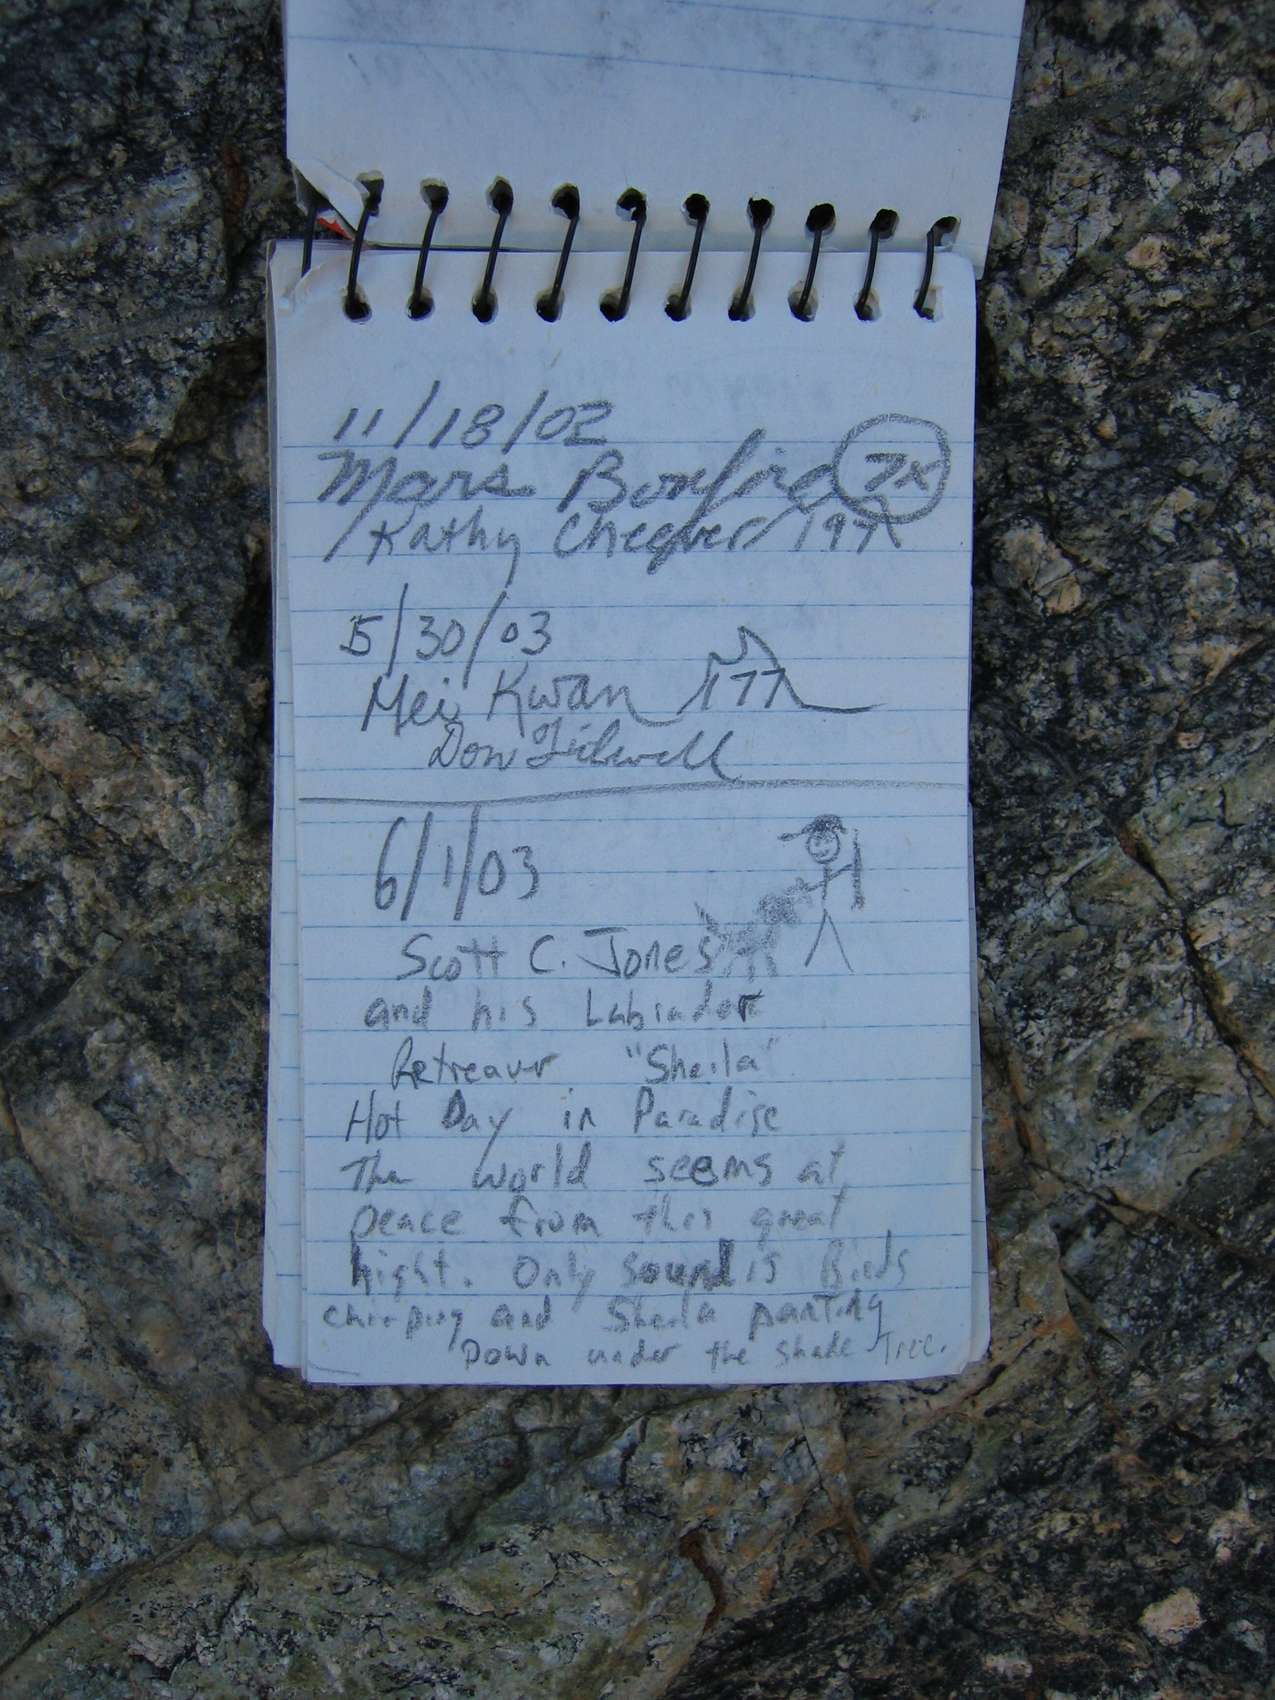 11/18/02
Mars Bonfire 7x
/Kathy Cheever/ 197
5/30/03
Mei Kwan 177
Don Tidwell
6/1/03
Scott C. Jones
and his Labrador
Retreaver "Sheila"
Hot Day in Paradise
The world seems at
peace from this great
hight. Only sound is Birds
chirping and Sheila panting
Down under the shade Tree.